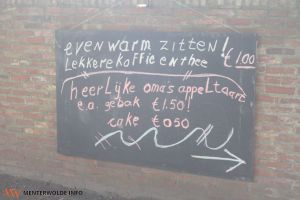 even warm zitten!
Lekkere koffie en thee € 1.00
heerlijke oma's appeltaart
e.a. gebak € 1.50!
cake € 0.50
MENTERWOLDE.INFO